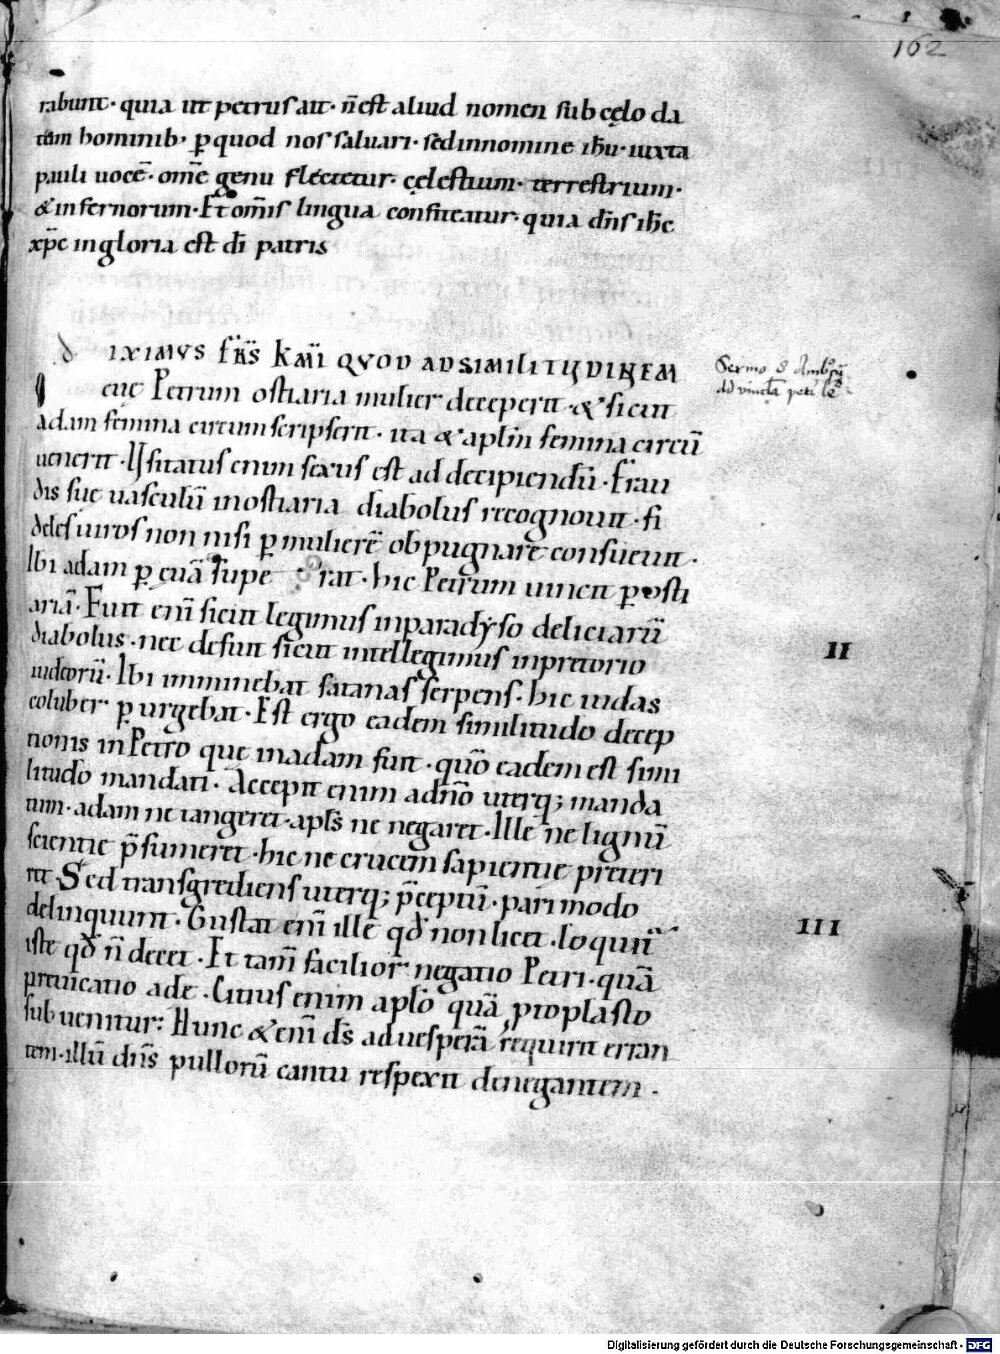 162
rabunt· quia ut petrus ait· n̄ est aliud nomen sub cęlo da
tum hominib; ꝑ quod nos saluari· sed in nomine ih̄u· iuxta
pauli uocē· om̄e genu flectetur· cęlestium· terrestrium·
& infernorum· Et om̄is lingua confiteatur· quia dn̄s ih̄c
xp̄c in gloria est dī patris
DIXIMVS fr̄s km̄i QVOD AD SIMILITVDINEM
euę Petrum ostiaria mulier deceperit· & sicut
adam femina circumscripserit· ita & aplm̄ femina circū
uenerit· Vsitatus enim sexus est ad decipiendū· Frau
dis suę uasculū in ostiaria diabolus recognouit· fi
deles uiros non nisi ꝑ mulierē obpugnare consueuit·
Ibi adam ꝑ euā supe rat· hic Petrum uincit ꝑ osti
ariā· Fuit enī sicut legimus in paradyso deliciarū
diabolus· nec defuit sicut intellegimus in pretorio
iudeorū· Ibi imminebat satanas serpens· hic iudas
coluber ꝑurgebat· Est ergo eadem similitudo decep
tionis in Petro quę in adam fuit· quō eadem est simi
litudo mandati· Accepit enim a dn̄o uterq; manda
tum· adam ne tangeret· apl̄s ne negaret· Ille ne lignū
scientię p̄sumeret· hic ne crucem sapientię preteri
ret· Sed transgrediens uterq; p̄ceptū· pari modo
delinquunt· Gustat enī ille qd̄ non licet· loquit᷑
iste qd̄ n̄ decet· Et tam̄ facilior negatio Petri· quā
preuicatio adę· Citius enim aplō quā proplasto
subuenitur: Hunc & enī ds̄ ad uesperā requirit erran
tem· illū dn̄s pullorū cantu respexit denegantem·
Sermo S Ambrosij
Ad vincl̄a petri
II
III
Digitalisierung gefördert durch die Deutsche Forschungsgemeinschaft · DFG